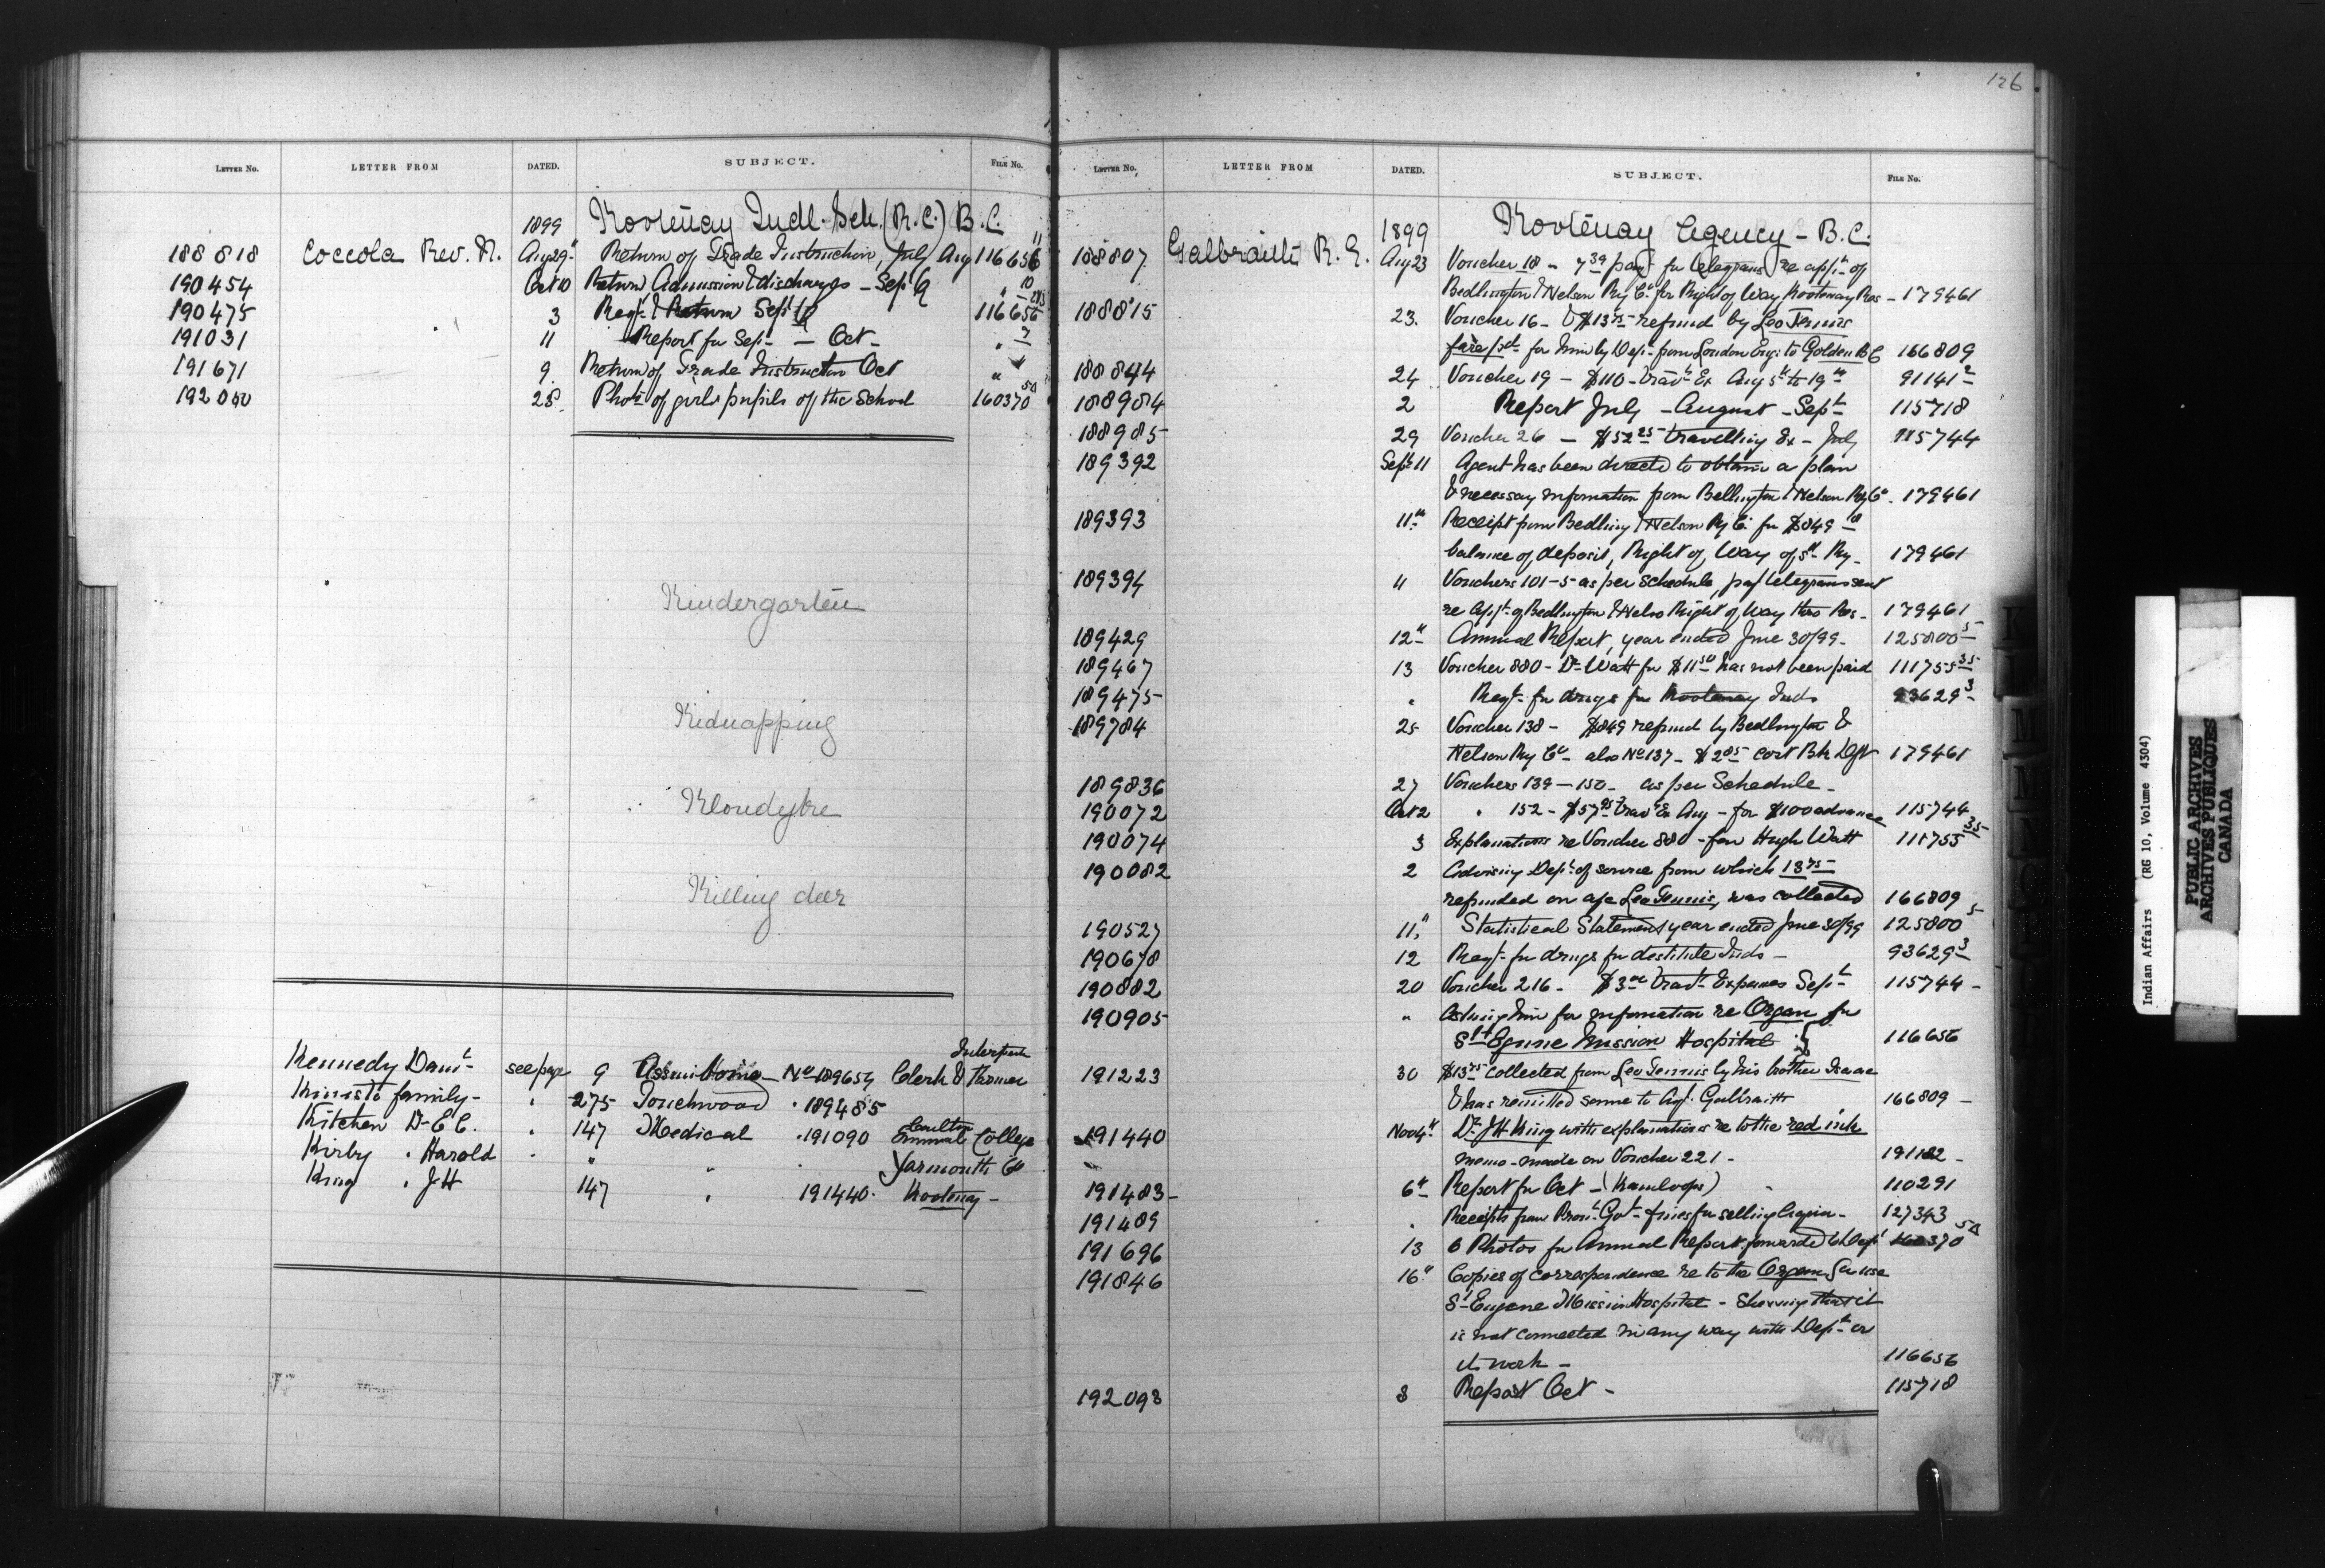 126
LETTER NO. LETTER FROM DATED. SUBJECT. FILE NO.
1899 Kootenay Indl. Sch. (R.C.) B.C.
188818 Coccola Rev. N. Aug 29" Return of Trade Instruction, July Aug 116656 11
190454 Oct 10 Return Admission & discharges - Sep' 9 " 10
190475 3 Reqt. & Return Sept 116656
191031 11 Report for Sept - Oct - " 7
191671 9 Return of Trade Instruction Oct "
192000 28. Photo of girls pupils of the School 160370 50
Kindergarten
Kidnapping
Klondyke
Killing deer
Kennedy Danl see page 9 Assiniboine - No 189654 Clerk & Farmer Interpreter
family - " 275 Touchwood " 189485
Kitchen Dr E C. " 147 Medical " 191090 College
Kirby " Harold " " " " Yarmouth Co
King " J H 147 " 191440. Kootenay -
LETTER NO. LETTER FROM DATED. SUBJECT. FILE NO.
1899 Kootenay Agency - B.C.
188807 Galbraith R. L. Aug 23 Voucher 18 - 7 39 payt for telegrams re applt of
Bedlington & Nelson Ry Co for Right of Way Kootenay Res - 179461
188815 23. Voucher 16 - $13 75 refund by Leo Tennis
fare pd for him by Dept from London Eng. to Golden B C 166809
188844 24 Voucher 19 - $110 - Trav Ex Aug 5th to 19th 91141 2
188984 2 Report July - August - Sept 115718
188985 29 Voucher 26 - $52 25 travelling Ex - July 115744
189392 Sept 11 Agent has been directed to obtain a plan
& necessary information from Bellington & Nelson Ry Co. 179461
189393 11th Receipt from Bedling & Nelson Ry Co for $849
balance of deposit, Right of Way of sd Ry - 179461
189394 11 Vouchers 101-5 as per schedule, pay telegrams sent
re applt of Bedlington & Nelson Right of Way thro Res - 179461
189429 12th Annual Report, year ended June 30/99 - 125800 5
189467 13 Voucher 880 - Dr Watt for $11 50 has not been paid 111755 35
189475 " Reqt for drugs for Kootenay Inds 93629 3
189784 25 Voucher 138 - $849 refund by Bedlington &
Nelson Ry Co - also No 137 - $2 85 cost Bk Dft 179461
189836 27 Vouchers 139 - 150 - as per Schedule -
190072 Oct 2 " 152 - $57 Trav Ex Aug - for $100 advance 115744
190074 3 Explanations re Voucher 880 - for Hugh Watt 111755 35
190082 2 Advising Dept of source from which 13 75
refunded on a/c Leo Tennis, was collected 166809
190527 11" Statistical Statement year ended June 30/99 125800 5
190678 12 Reqt for drugs for destitute Inds - 93629 3
190882 20 Voucher 216 - $3 Trav Expenses Sept 115744 -
190905 " Asking him for information re Organ for
St Eugene Mission Hospital 116656
191223 30 $13 75 collected from Leo Tennis by his brother Isaac
& has remitted same to Agt. Galbraith 166809 -
191440 Nov 4th Dr J H King with explanations re to the red ink
memo - made on Voucher 221 - 191182 -
191483 - 6th Report for Oct - (Kamloops) 110291
191489 " Receipts from Provl Govt - fines for selling liquor - 127343
191696 13 6 Photos for Annual Report forwarded to Dept 160370 50
191846 16" Copies of correspondence re to the Organ for use
St Eugene Mission Hospital - Showing that it
is not connected in any way with Dept or
its work - 116656
192093 8 Report Oct - 115718
Indian Affairs (RG 10, Volume 4304)
PUBLIC ARCHIVES
ARCHIVES PUBLIQUES
CANADA